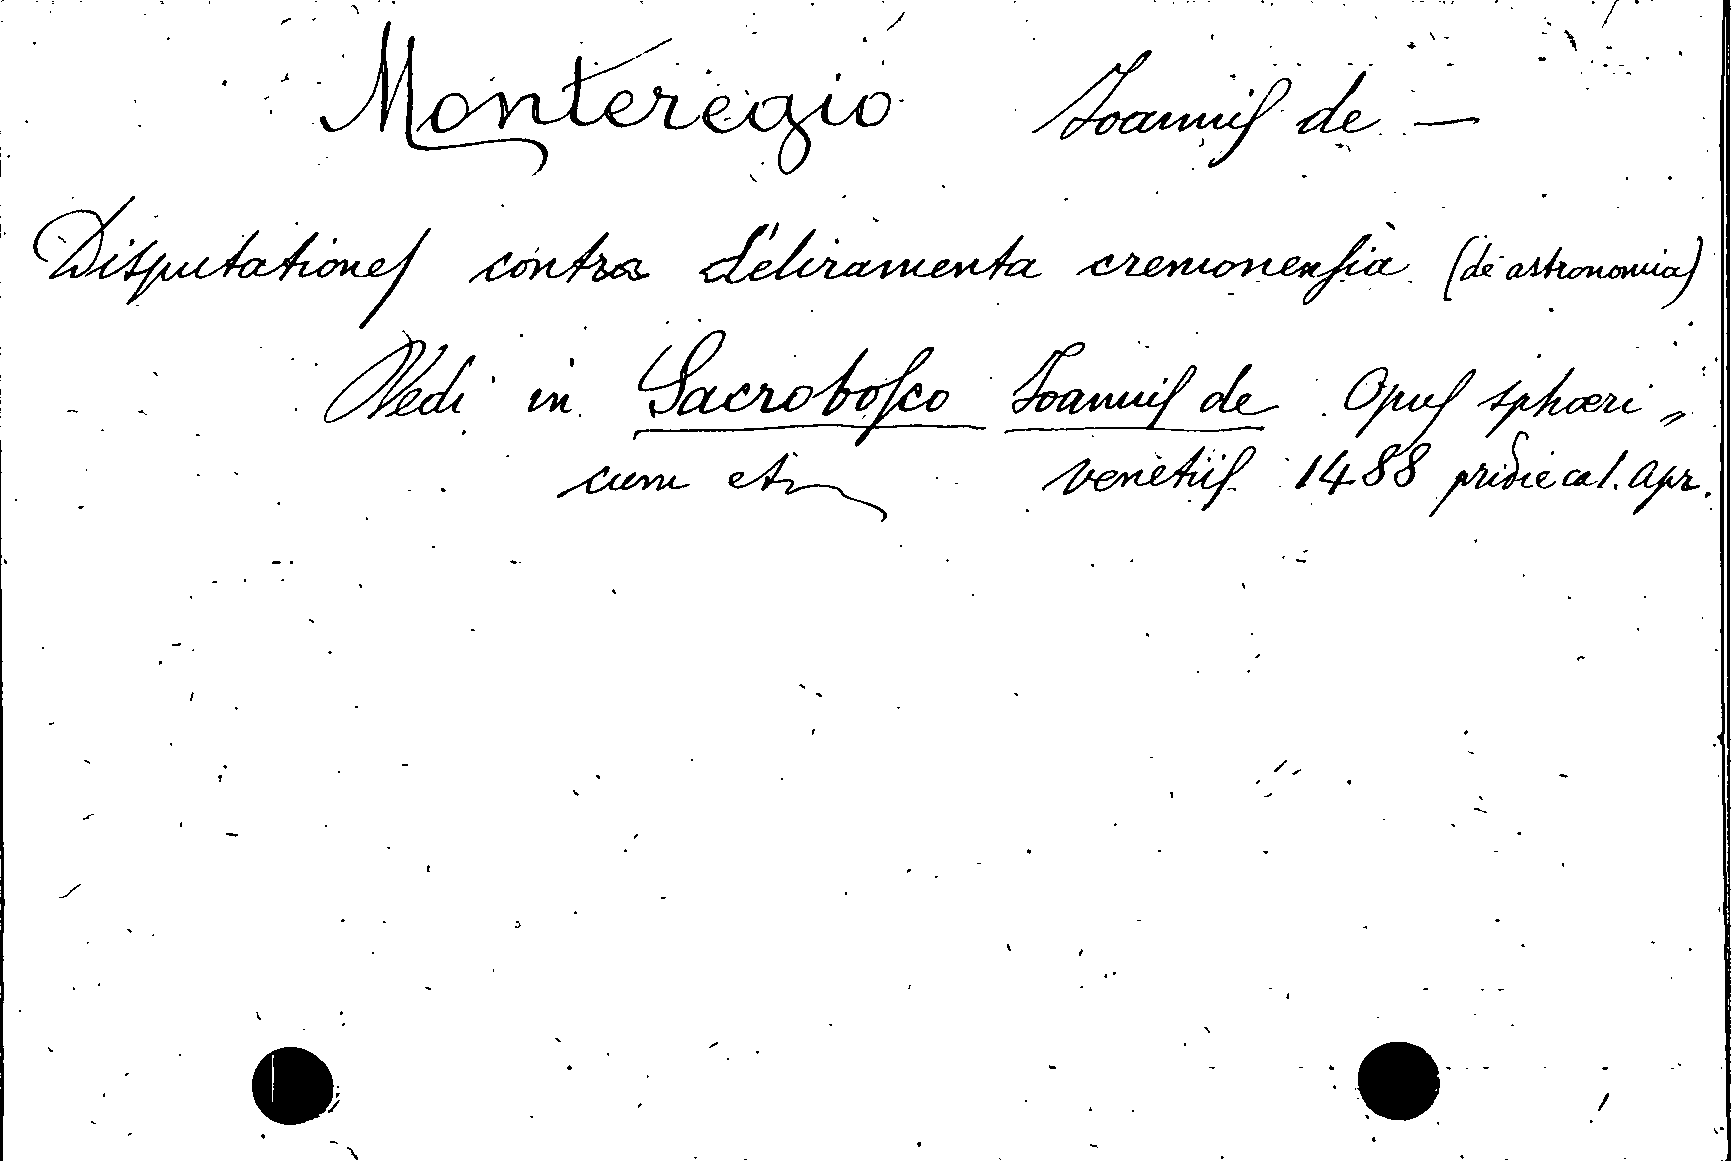 Monteregio Ioannis de —
Disputationes contra deliramenta cremonensia (de astronomia)
Vedi in Sacrobosco Ioannis de Opus sphæri„
cum etc venetiis 1488 pridie cal. apr.